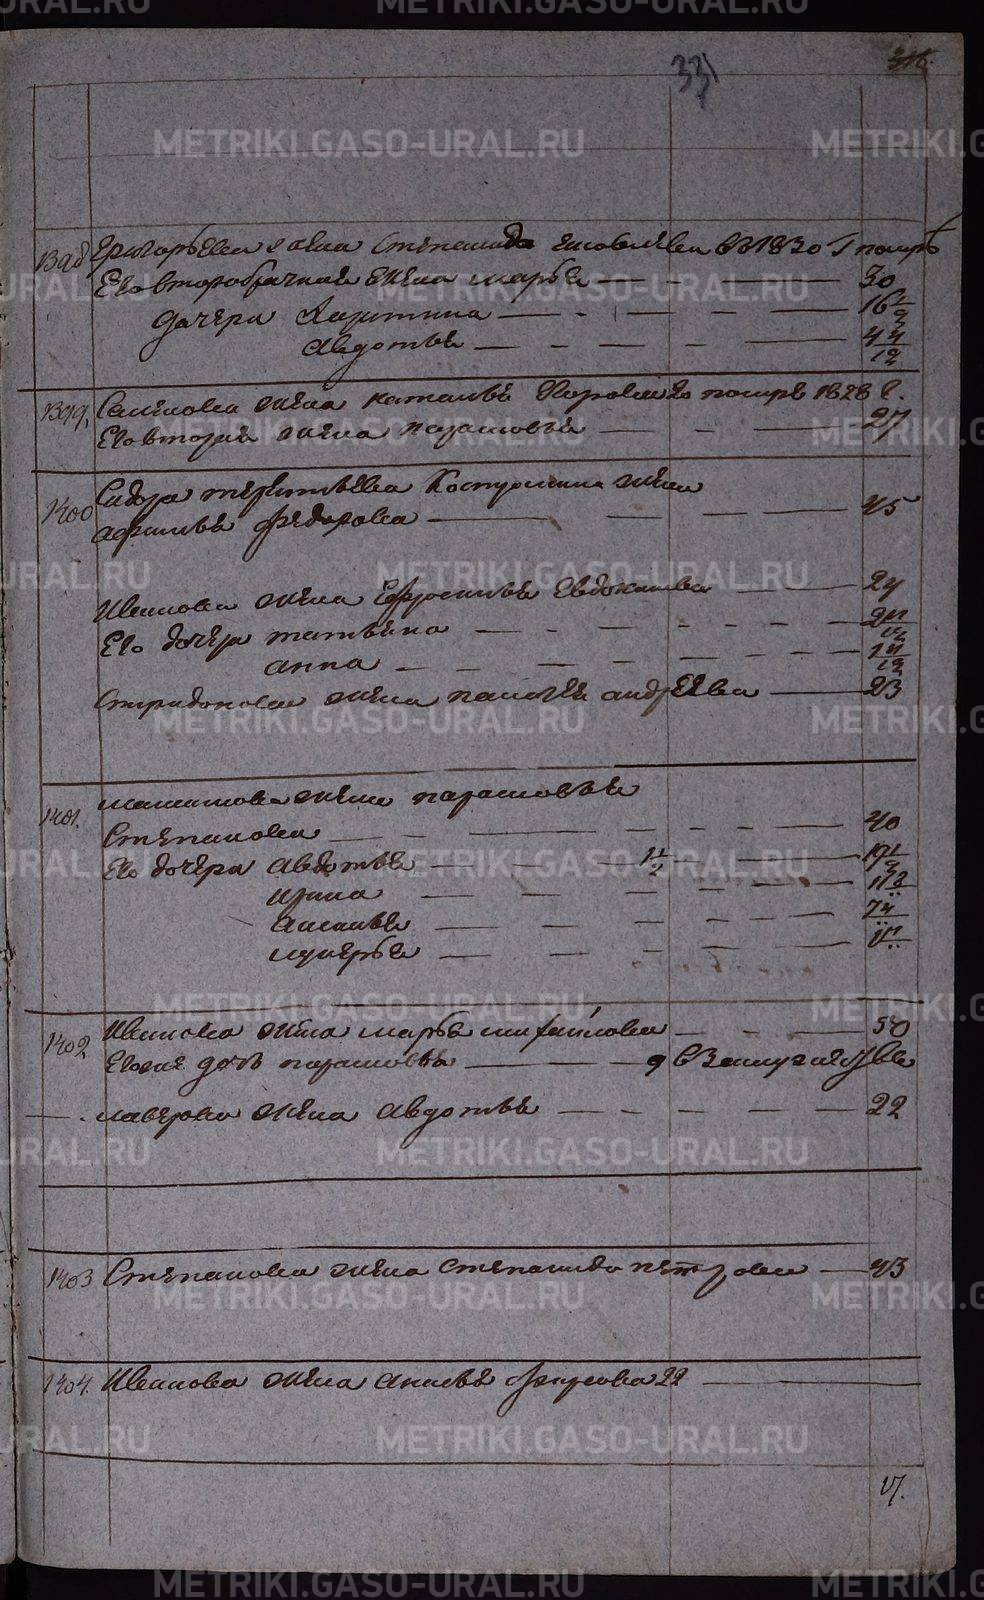 331
1398 Григорьева жена Степанида Яковлева въ 1830 г помръ
Его второбрачная жена Марья — 30
дочери Харитина — 16 1/2
Авдотья — 4 4/12
1399. Семенова жена Наталья 1828 г.
Его вторая жена Парасковья — 27
1400 Сидора Терентьева Костромина жена
Афимья Федорова — 45
Иванова жена Ефросинья Евдокимова — 24
Его дочери Татьяна
Анна
Спиридонова жена Палагея Андреева — 23
1401. Максимова жена Парасковья
Степановна — 40
Его дочери Авдотья — 1 1/2 — 17 1/2
Ирина
Аксинья
Лукерья
1402 Иванова жена Марья Михайлова — 50
дочь Парасковья — 9 въ замужестве
Лаверова жена Авдотья — 22
1403 Степанова жена Степанида Петрова — 43
1404. Иванова жена Анисья 22
17.
METRIKI.GASO-URAL.RU